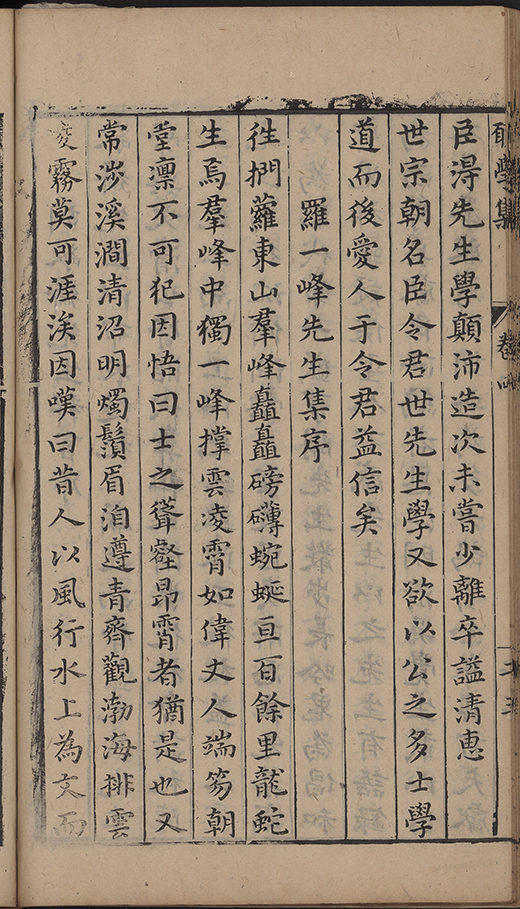 學集 卷四
臣淂先生學顛沛造次未嘗少離卒謚清惠
世宗朝名臣令君世先生學又欲以公之多士學
道而後愛人于令君益信矣
羅一峰先生集序
徃捫蘿東山羣峰矗矗磅礴蜿蜒亘百餘里龍蛇
生焉羣峰中獨一峰撑雲凌霄如偉丈人端笏朝
堂凛不可犯因悟曰士之聳壑昂霄者猶是也又
常涉溪澗清沼明燭鬚眉洎遵青齊觀渤海排雲
凌霧莫可涯涘因嘆曰昔人以風行水上為文而